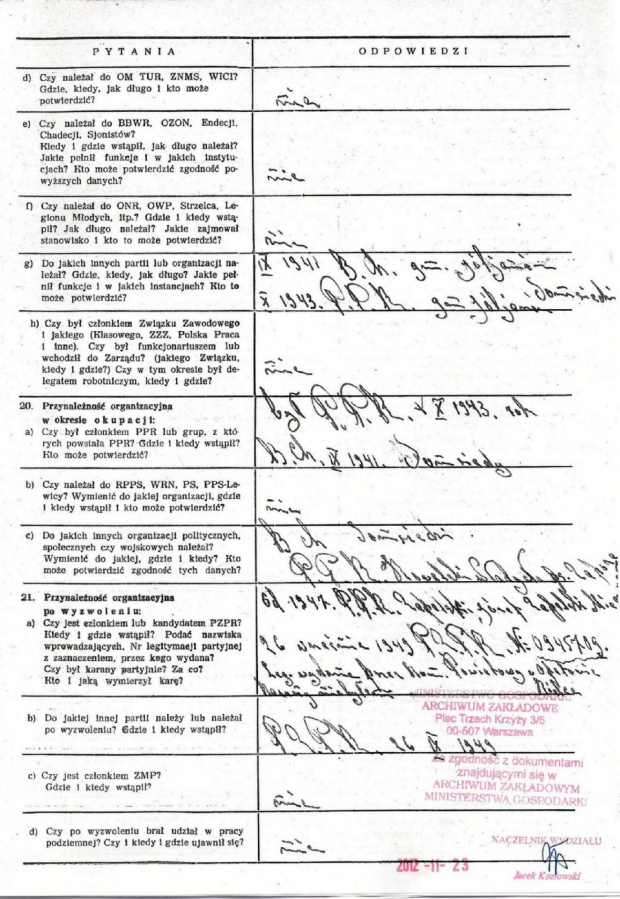 PYTANIA
ODPOWIEDZI
d) Czy należał do OM TUR, ZNMS, WICI?
Gdzie, kiedy, jak długo i kto może
potwierdzić?
nie
e) Czy należał do BBWR, OZON, Endecji,
Chadecji, Sjonistów?
Kiedy i gdzie wstąpił, jak długo należał?
Jakie pełnił funkcje i w jakich instytu-
cjach? Kto może potwierdzić zgodność po-
wyższych danych?
nie
f) Czy należał do ONR, OWP, Strzelca, Le-
gionu Młodych, itp.? Gdzie i kiedy wstą-
pił? Jak długo należał? Jakie zajmował
stanowisko i kto to może potwierdzić?
nie
g) Do jakich innych partii lub organizacji na-
leżał? Gdzie, kiedy, jak długo? Jakie peł-
nił funkcje i w jakich instancjach? Kto to
może potwierdzić?
IX 1941 B.Ch. gm.
X 1943. P.P.R. gm.
h) Czy był członkiem Związku Zawodowego
i jakiego (Klasowego, ZZZ, Polska Praca
i inne). Czy był funkcjonariuszem lub
wchodził do Zarządu? (jakiego Związku,
kiedy i gdzie?) Czy w tym okresie był de-
legatem robotniczym, kiedy i gdzie?
nie
20. Przynależność organizacyjna
w okresie okupacji:
a) Czy był członkiem PPR lub grup, z któ-
rych powstała PPR? Gdzie i kiedy wstąpił?
Kto może potwierdzić?
był P.P.R. X 1943. rok
B.Ch. IX 1941.
b) Czy należał do RPPS, WRN, PS, PPS-Le-
wicy? Wymienić do jakiej organizacji, gdzie
i kiedy wstąpił i kto może potwierdzić?
nie
c) Do jakich innych organizacji politycznych,
społecznych czy wojskowych należał?
Wymienić do jakiej, gdzie i kiedy? Kto
może potwierdzić zgodność tych danych?
B Ch
P.P.R.
21. Przynależność organizacyjna
po wyzwoleniu:
a) Czy jest członkiem lub kandydatem PZPR?
Kiedy i gdzie wstąpił? Podać nazwiska
wprowadzających, Nr legitymacji partyjnej
z zaznaczeniem, przez kogo wydana?
Czy był karany partyjnie? Za co?
Kto i jaką wymierzył karę?
od 1947. P.P.R.
26 września 1949 P.Z.P.R. №: 0945709.
Leg. wydana przez Kom. Powiatowy
b) Do jakiej innej partii należy lub należał
po wyzwoleniu? Gdzie i kiedy wstąpił?
P.Z.P.R. 26 IX 1949
c) Czy jest członkiem ZMP?
Gdzie i kiedy wstąpił?
nie
d) Czy po wyzwoleniu brał udział w pracy
podziemnej? Czy i kiedy i gdzie ujawnił się?
nie
MINISTERSTWO GOSPODARKI
ARCHIWUM ZAKŁADOWE
Plac Trzech Krzyży 3/5
00-507 Warszawa
Za zgodność z dokumentami
znajdującymi się w
ARCHIWUM ZAKŁADOWYM
MINISTERSTWA GOSPODARKI
NACZELNIK WYDZIAŁU
2012 -11- 23
Jacek Kozłowski